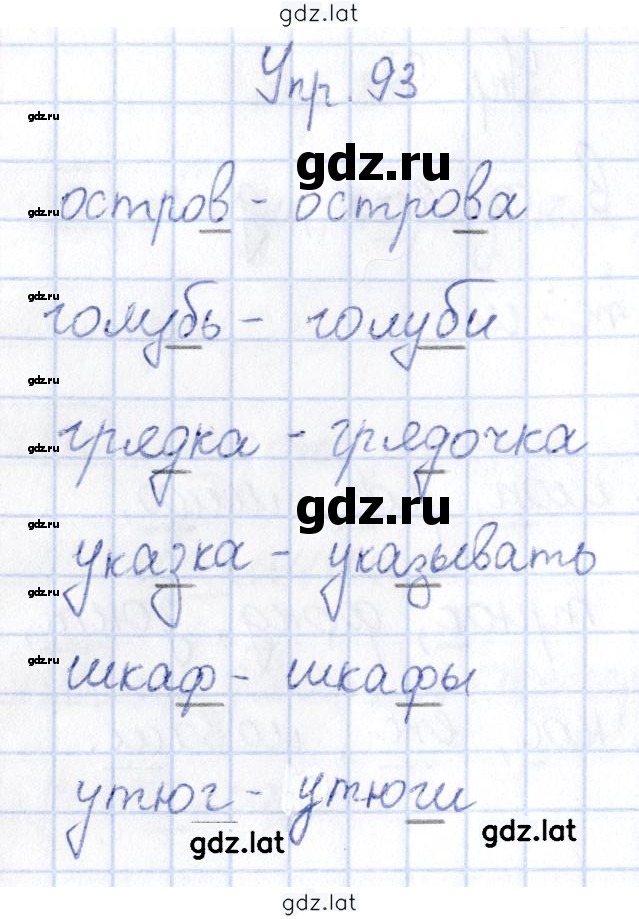 gdz.lat
Упр. 93
gdz.ru
gdz.ru
остров - острова
gdz.ru
gdz.ru
голубь - голуби
gdz.ru
грядка - грядочка
gdz.ru
gdz.ru
gdz.ru
указка - указывать
gdz.ru
шкаф - шкафы
утюг - утюги
gdz.lat
gdz.lat
gdz.lat